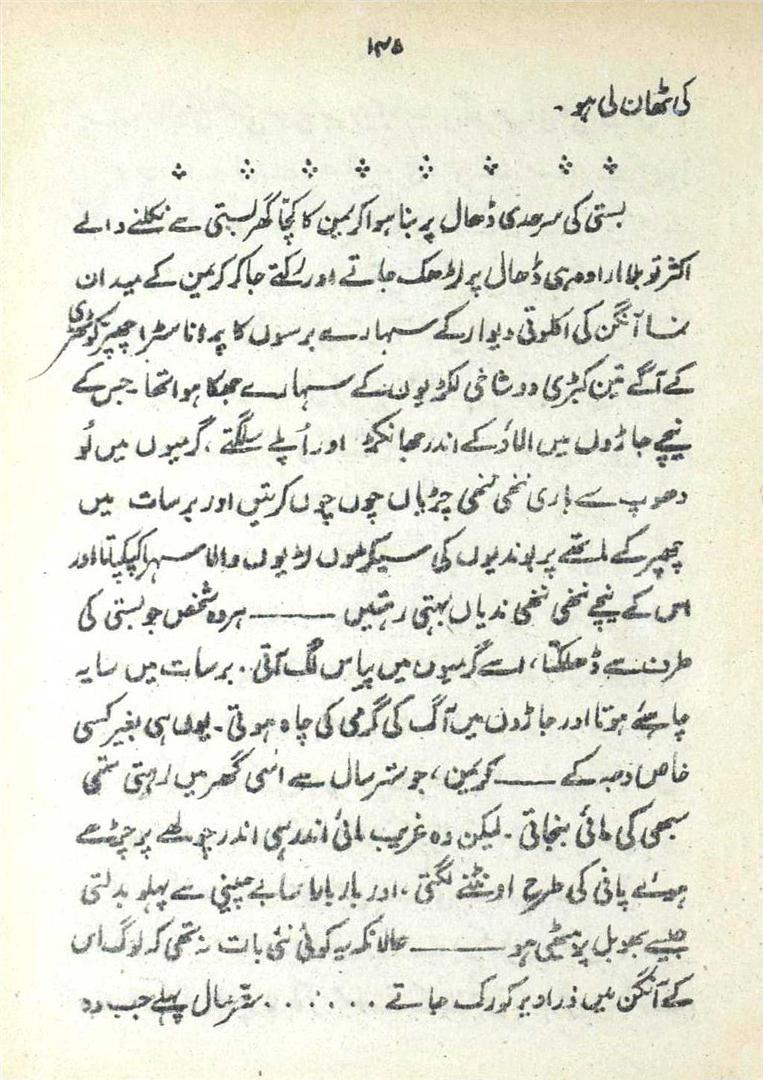 ۱۳۵
کی ٹھان لی ہو۔
بستی کی سرحدی ڈھال پر بنا ہوا کریمن کا کچّا گھر بستی سے نکلنے والے
اکثر تو بلا ارادہ ہی ڈھال پر لڑھک جاتے اور رکتے جا کر کریمن کے میدان
نما آنگن کی اکلوتی دیوار کے سہارے برسوں کا پرانا سڑا چھپر کوٹھری
کے آگے تین کبڑی دو شاخی لکڑیوں کے سہارے جھکا ہوا تھا۔ جس کے
نیچے جاڑوں میں الاؤ کے اندر جھانکھڑ اور اُپلے سلگتے، گرمیوں میں لُو
دھوپ سے ہاری ننھی ننھی چڑیاں چوں چوں کرتیں اور برسات میں
چھپر کے ماتھے پر بوندیوں کی سیکڑوں لڑیوں والا سہرا کپکپاتا اور
اس کے نیچے ننھی ننھی ندیاں بہتی رہتیں ——— ہر وہ شخص جو بستی کی
طرف سے ڈھلکتا، اسے گرمیوں میں پیاس لگ آتی۔ برسات میں سایہ
چاہئے ہوتا اور جاڑوں میں آگ کی گرمی کی چاہ ہوتی۔ یوں ہی بغیر کسی
خاص وجہ کے ——— کریمن، جو ستر سال سے اسی گھر میں رہتی تھی
سبھی کی مائی بنجاتی۔ لیکن وہ غریب مائی اندر ہی اندر چولھے پر چڑھے
ہوئے پانی کی طرح اونٹنے لگتی، اور بار بار بے چینی سے پہلو بدلتی
جیسے بھوبل پر بیٹھی ہو ——— حالانکہ یہ کوئی نئی بات نہ تھی کہ لوگ اس
کے آنگن میں ذرا دیر کو رک جاتے ....... ستر سال پہلے جب وہ